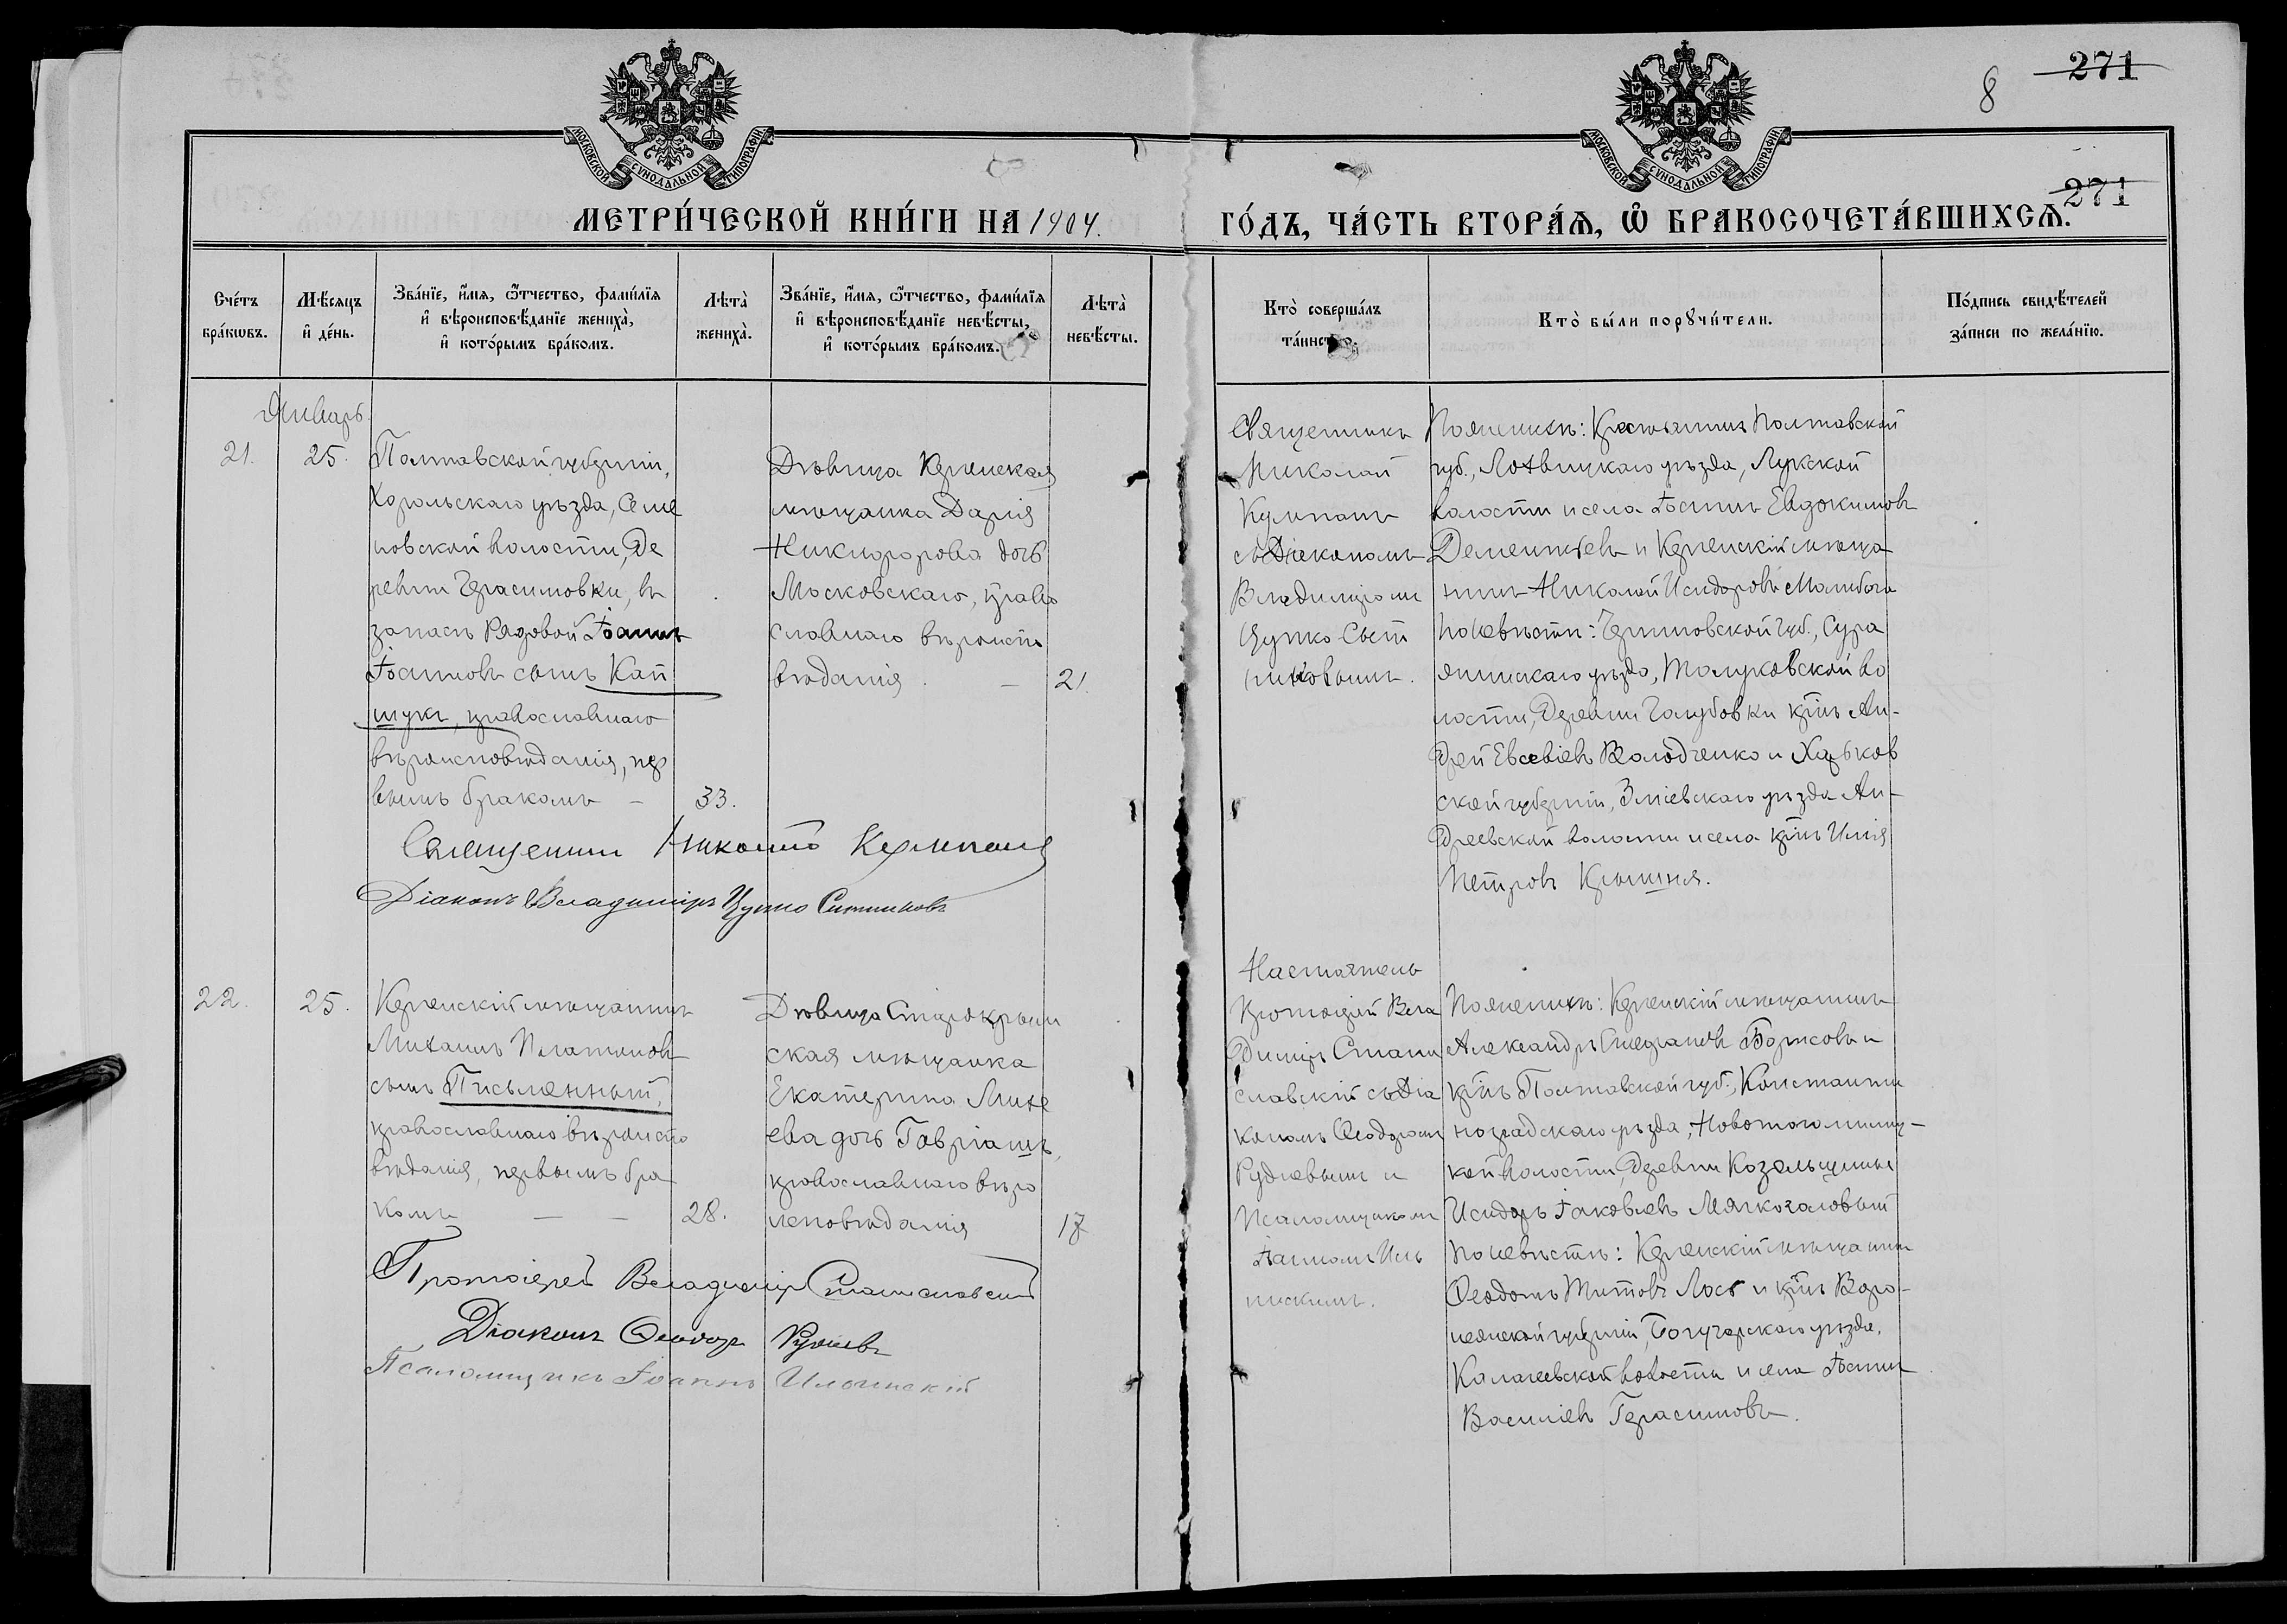 271
8
271
МОСКОВСКОЙ СѴНОДАЛЬНОЙ ТИПОГРАФІИ
МОСКОВСКОЙ СѴНОДАЛЬНОЙ ТИПОГРАФІИ
МЕТРИ́ЧЕСКОЙ КНИ́ГИ НА 1904.
ГО́ДЪ, ЧА́СТЬ ВТОРА́Ѧ, Ѽ БРАКОСОЧЕТА́ВШИХСѦ.
Сче́тъ
бра́кѡвъ.
Мѣ́сяцъ
и҆ де́нь.
Зва́нїе, и҆́мѧ, ѻ҆́тчество, фами́лїѧ
и҆ вѣроисповѣ́данїе жениха̀,
и҆ кото́рымъ бра́комъ.
Лѣта̀
жениха̀.
Зва́нїе, и҆́мѧ, ѻ҆́тчество, фами́лїѧ
и҆ вѣроисповѣ́данїе невѣ́сты,
и҆ кото́рымъ бра́комъ.
Лѣта̀
невѣ́сты.
Кто̀ соверша́лъ
та́инство.
Кто̀ бы́ли порꙋчи́тели.
По́дпись свидѣ́телей
за́писи по жела́нїю.
Январь.
21.
25.
Полтавской губерніи,
Хорольскаго уѣзда, Семе
новской волости, Де
ревни Герасимовки, въ
запасѣ Рядовой Іоаннъ
Іоанновъ сынъ Кап
шукъ, православнаго
вѣроисповѣданія, пер
вымъ бракомъ –
33.
Дѣвица Керченская
мѣщанка Дарія
Никифорова дочь
Московскаго, право
славнаго вѣроиспо
вѣданія. –
21.
Священникъ
Николай
Кумпанъ
съ Діакономъ
Владиміромъ
Цупко Сыт
никовымъ.
По женихѣ: Крестьянинъ Полтавской
губ., Лохвицкаго уѣзда, Лукской
волости и села Іоаннъ Евдокимовъ
Дементьевъ и Керченскій мѣща
нинъ Николай Исидоровъ
По невѣстѣ: Черниговской губ., Сура
жинскаго уѣзда, во
лости, Деревни Голубовки кр–нъ Ан-
дрей Евсевіевъ Колодченко и Харьков
ской губерніи, Зміевскаго уѣзда Ан-
дреевской волости и села кр–нъ Илія
Петровъ
Священникъ Николай Кумпанъ
Діаконъ Владиміръ Цупко Сытниковъ
22.
25.
Керченскій мѣщанинъ
Михаилъ Платоновъ
сынъ Письменный,
православнаго вѣроиспо
вѣданія, первымъ бра
комъ – –
28.
Дѣвица Старокрым
ская мѣщанка
Екатерина Михе
ева дочь Гавріашъ,
православнаго вѣро
исповѣданія
17
Настоятель
Протоіерей Вла
диміръ Стани
славскій съ Діа
кономъ Ѳеодоромъ
Рудневымъ и
Псаломщикомъ
Іоанномъ Иль
инскимъ.
По женихѣ: Керченскій мѣщанинъ
Александръ Стефановъ Борисовъ и
кр–нъ Полтавской губ., Константи
ноградскаго уѣзда,
кой волости, Деревни Козельщины
Исидоръ Іаковлевъ Мягкоголовый
По невѣстѣ: Керченскій мѣщанинъ
Ѳеодотъ Титовъ Лось и кр–нъ Воро-
нежской губерніи, Богучарскаго уѣзда,
Калачевской волости и села Іоаннъ
Василіевъ Герасимовъ.
Протоіерей Владиміръ Станиславскій
Діаконъ Ѳеодоръ Рудневъ
Псаломщикъ Іоаннъ Ильинскій